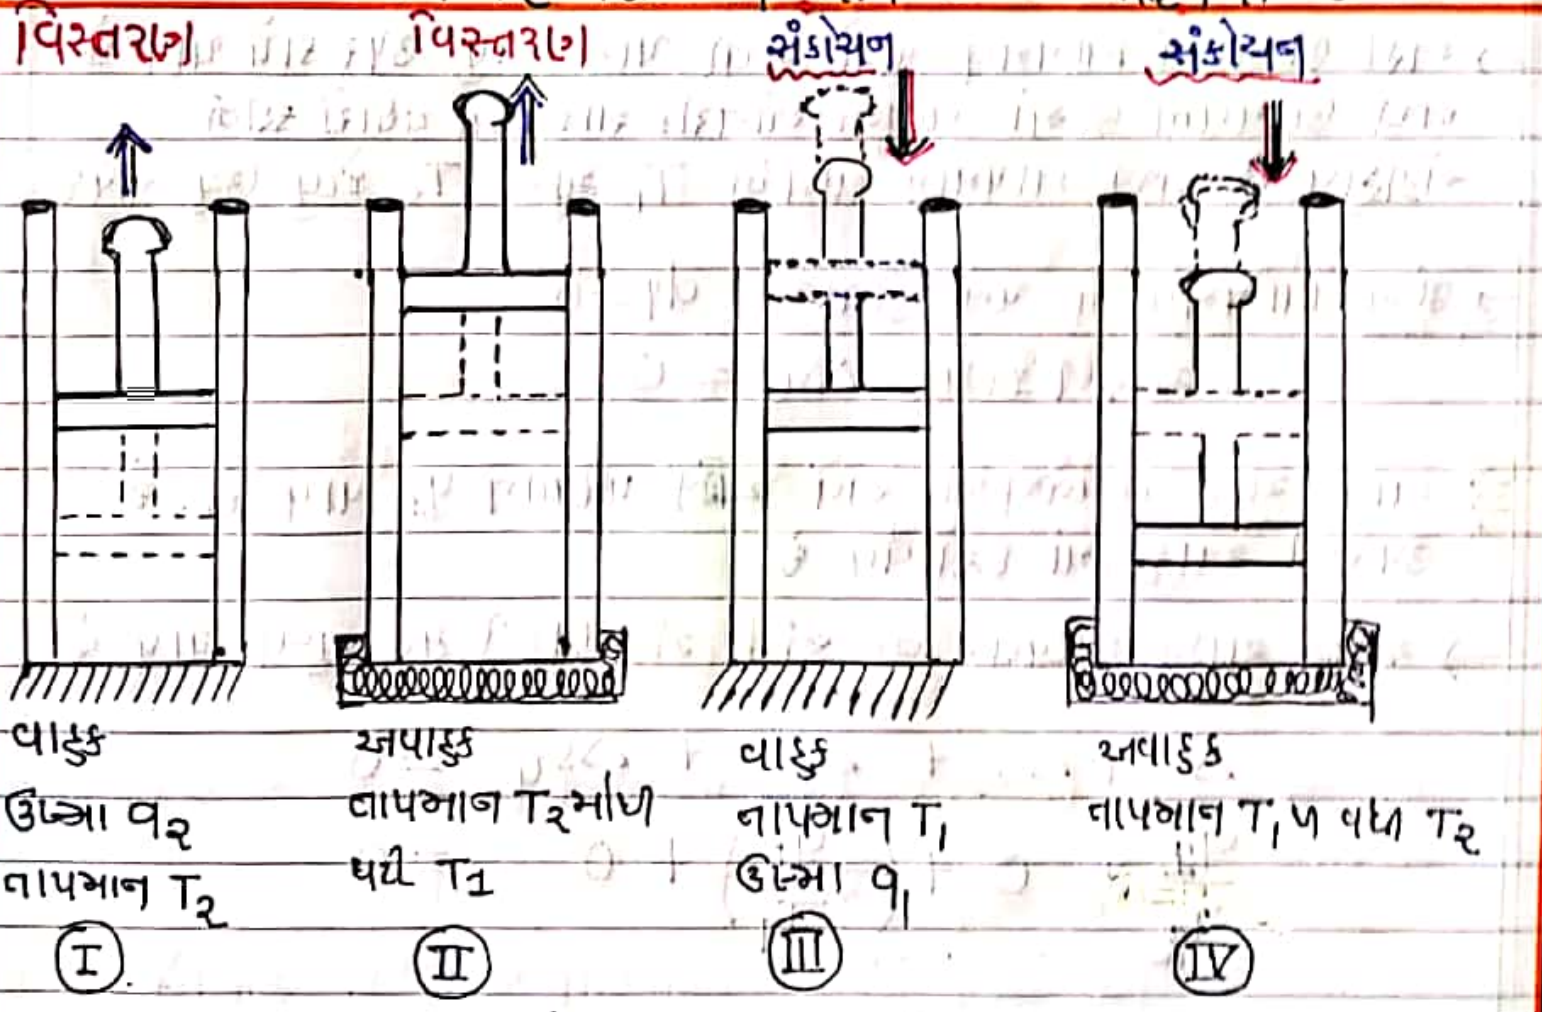 વિસ્તરણ
વિસ્તરણ
સંકોચન
સંકોચન
વાહક
ઉષ્મા q2
તાપમાન T2
I
અવાહક
તાપમાન T2માંથી
ઘટી T1
II
વાહક
તાપમાન T1
ઉષ્મા q1
III
અવાહક
તાપમાન T1 થી વધી T2
IV